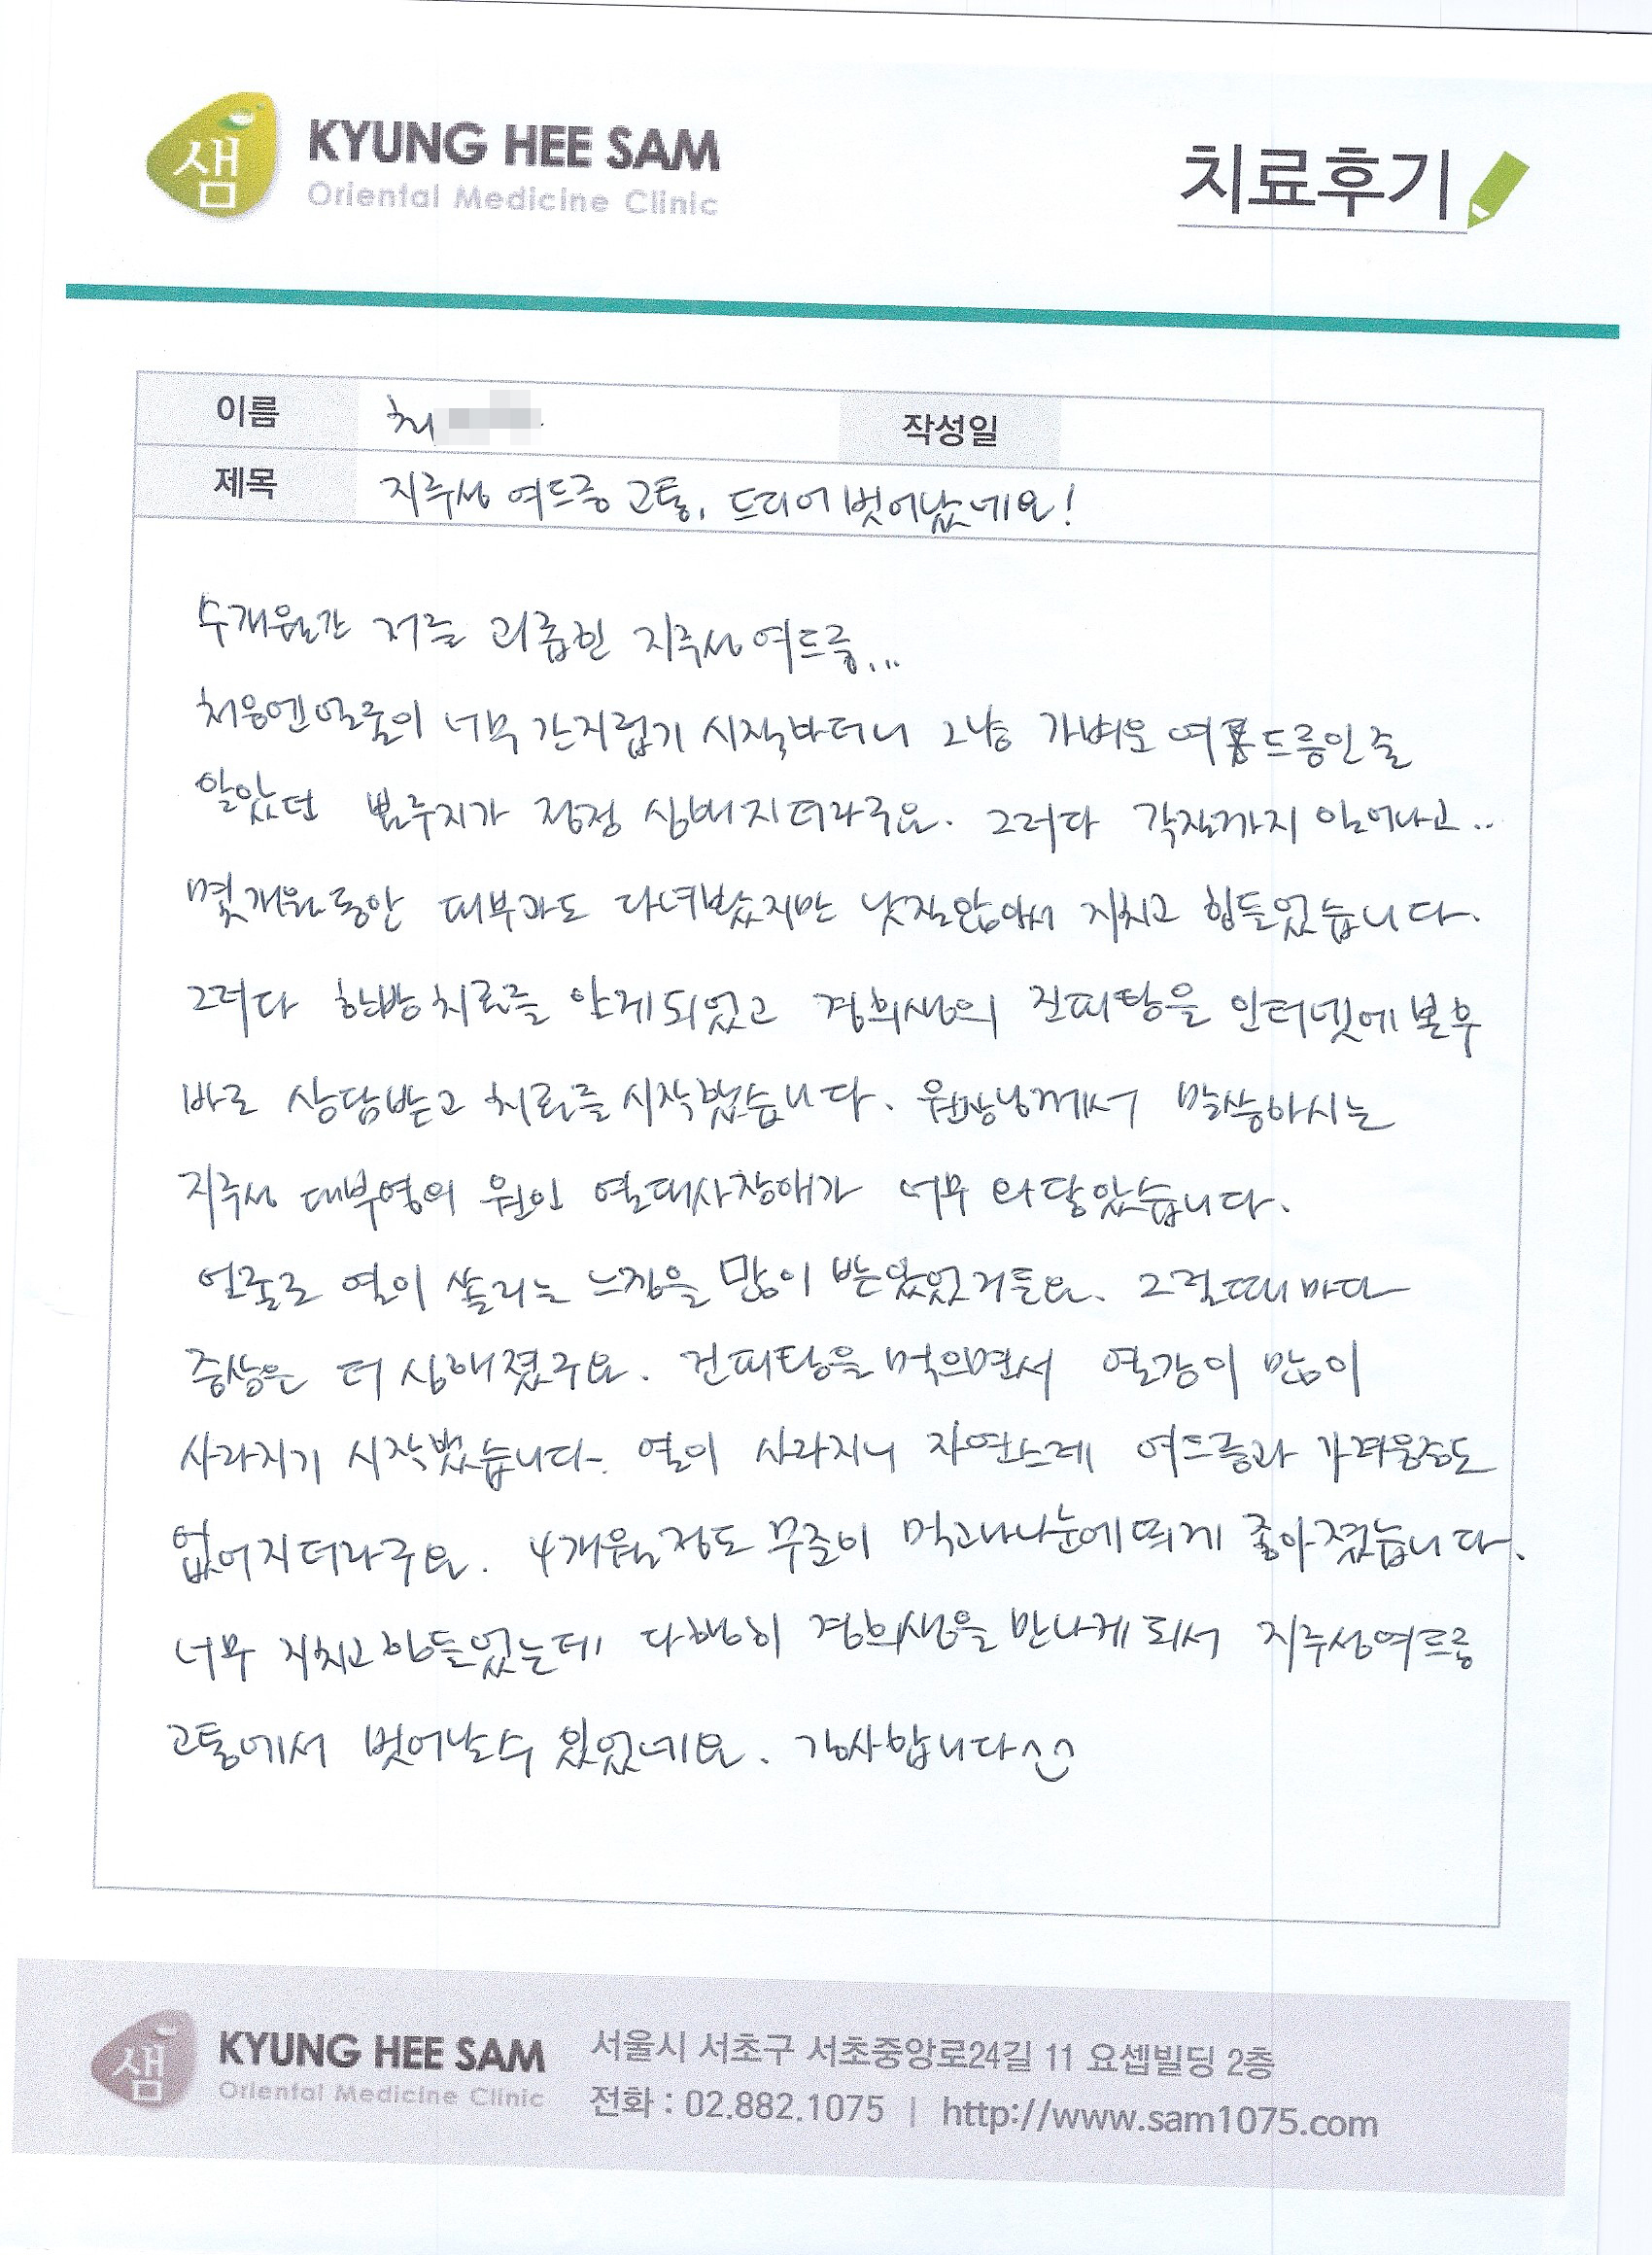 샘 KYUNG HEE SAM
Oriental Medicine Clinic
치료후기
이름 최
작성일
제목 지루성 여드름 고통, 드디어 벗어났네요!
수개월간 저를 괴롭힌 지루성여드름...
처음엔 얼굴이 너무 간지럽기 시작하더니 그냥 가벼운 여드름인줄
알았던 뾰루지가 점점 심해지더라구요. 그러다 각질까지 일어나고..
몇개월동안 피부과도 다녀봤지만 낫질않아서 지치고 힘들었습니다.
그러다 한방치료를 알게되었고 경희샘의 건피탕을 인터넷에 본후
바로 상담받고 치료를 시작했습니다. 원장님께서 말씀하시는
지루성 의 원인 열대사장애가 너무 와닿았습니다.
얼굴로 열이 쏠리는 느낌을 많이 받았었거든요. 그럴때마다
증상은 더 심해졌구요. 건피탕을 먹으면서 열감이 많이
사라지기 시작했습니다. 열이 사라지니 자연스레 여드름과 가려움증도
없어지더라구요. 4개월정도 꾸준히 먹고나니 눈에띄게 좋아졌습니다.
너무 지치고 힘들었는데 다행히 경희샘을 만나게 되서 지루성여드름
고통에서 벗어날수 있었네요. 감사합니다^^
샘 KYUNG HEE SAM
Oriental Medicine Clinic
서울시 서초구 서초중앙로24길 11 요셉빌딩 2층
전화 : 02.882.1075 | http://www.sam1075.com